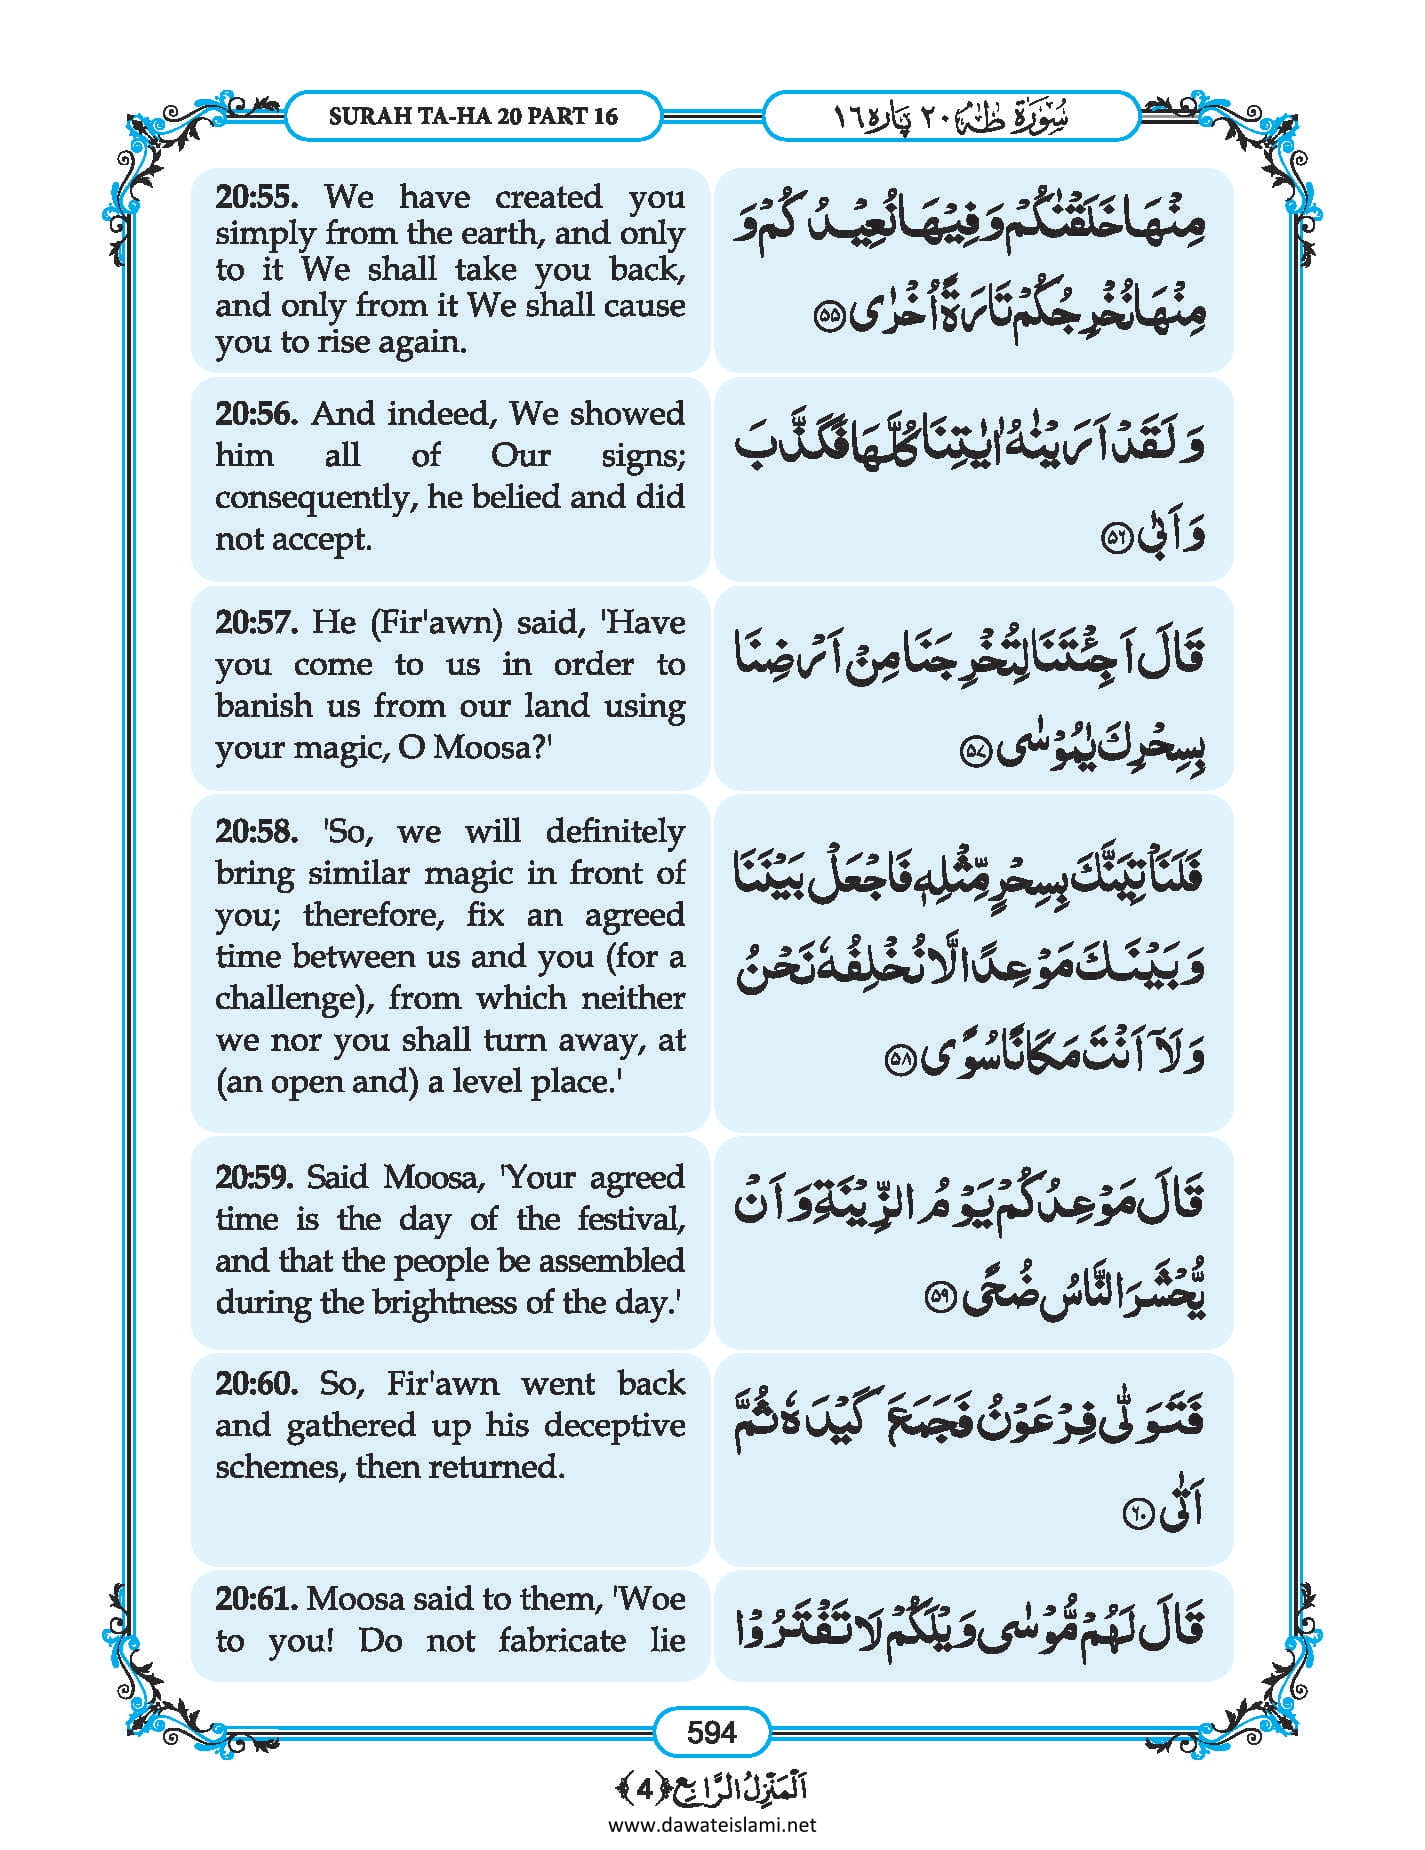 SURAH TA-HA 20 PART 16
سُوْرَۃُ طٰہٰ ٢٠ پارہ ١٦
20:55. We have created you
simply from the earth, and only
to it We shall take you back,
and only from it We shall cause
you to rise again.
مِنْهَا خَلَقْنٰكُمْ وَ فِیْهَا نُعِیْدُكُمْ وَ
مِنْهَا نُخْرِجُكُمْ تَارَةً اُخْرٰى ﴿۵۵﴾
20:56. And indeed, We showed
him all of Our signs;
consequently, he belied and did
not accept.
وَ لَقَدْ اَرَیْنٰهُ اٰیٰتِنَا كُلَّهَا فَكَذَّبَ
وَ اَبٰى ﴿۵۶﴾
20:57. He (Fir'awn) said, 'Have
you come to us in order to
banish us from our land using
your magic, O Moosa?'
قَالَ اَجِئْتَنَا لِتُخْرِجَنَا مِنْ اَرْضِنَا
بِسِحْرِكَ یٰمُوْسٰى ﴿۵۷﴾
20:58. 'So, we will definitely
bring similar magic in front of
you; therefore, fix an agreed
time between us and you (for a
challenge), from which neither
we nor you shall turn away, at
(an open and) a level place.'
فَلَنَاْتِیَنَّكَ بِسِحْرٍ مِّثْلِهٖ فَاجْعَلْ بَیْنَنَا
وَ بَیْنَكَ مَوْعِدًا لَّا نُخْلِفُهٗ نَحْنُ
وَ لَاۤ اَنْتَ مَكَانًا سُوًى ﴿۵۸﴾
20:59. Said Moosa, 'Your agreed
time is the day of the festival,
and that the people be assembled
during the brightness of the day.'
قَالَ مَوْعِدُكُمْ یَوْمُ الزِّیْنَةِ وَ اَنْ
یُّحْشَرَ النَّاسُ ضُحًى ﴿۵۹﴾
20:60. So, Fir'awn went back
and gathered up his deceptive
schemes, then returned.
فَتَوَلّٰى فِرْعَوْنُ فَجَمَعَ كَیْدَهٗ ثُمَّ
اَتٰى ﴿۶۰﴾
20:61. Moosa said to them, 'Woe
to you! Do not fabricate lie
قَالَ لَهُمْ مُّوْسٰى وَیْلَكُمْ لَا تَفْتَرُوْا
594
اَلْمَنْزِلُ الرَّابِع ﴿4﴾
www.dawateislami.net